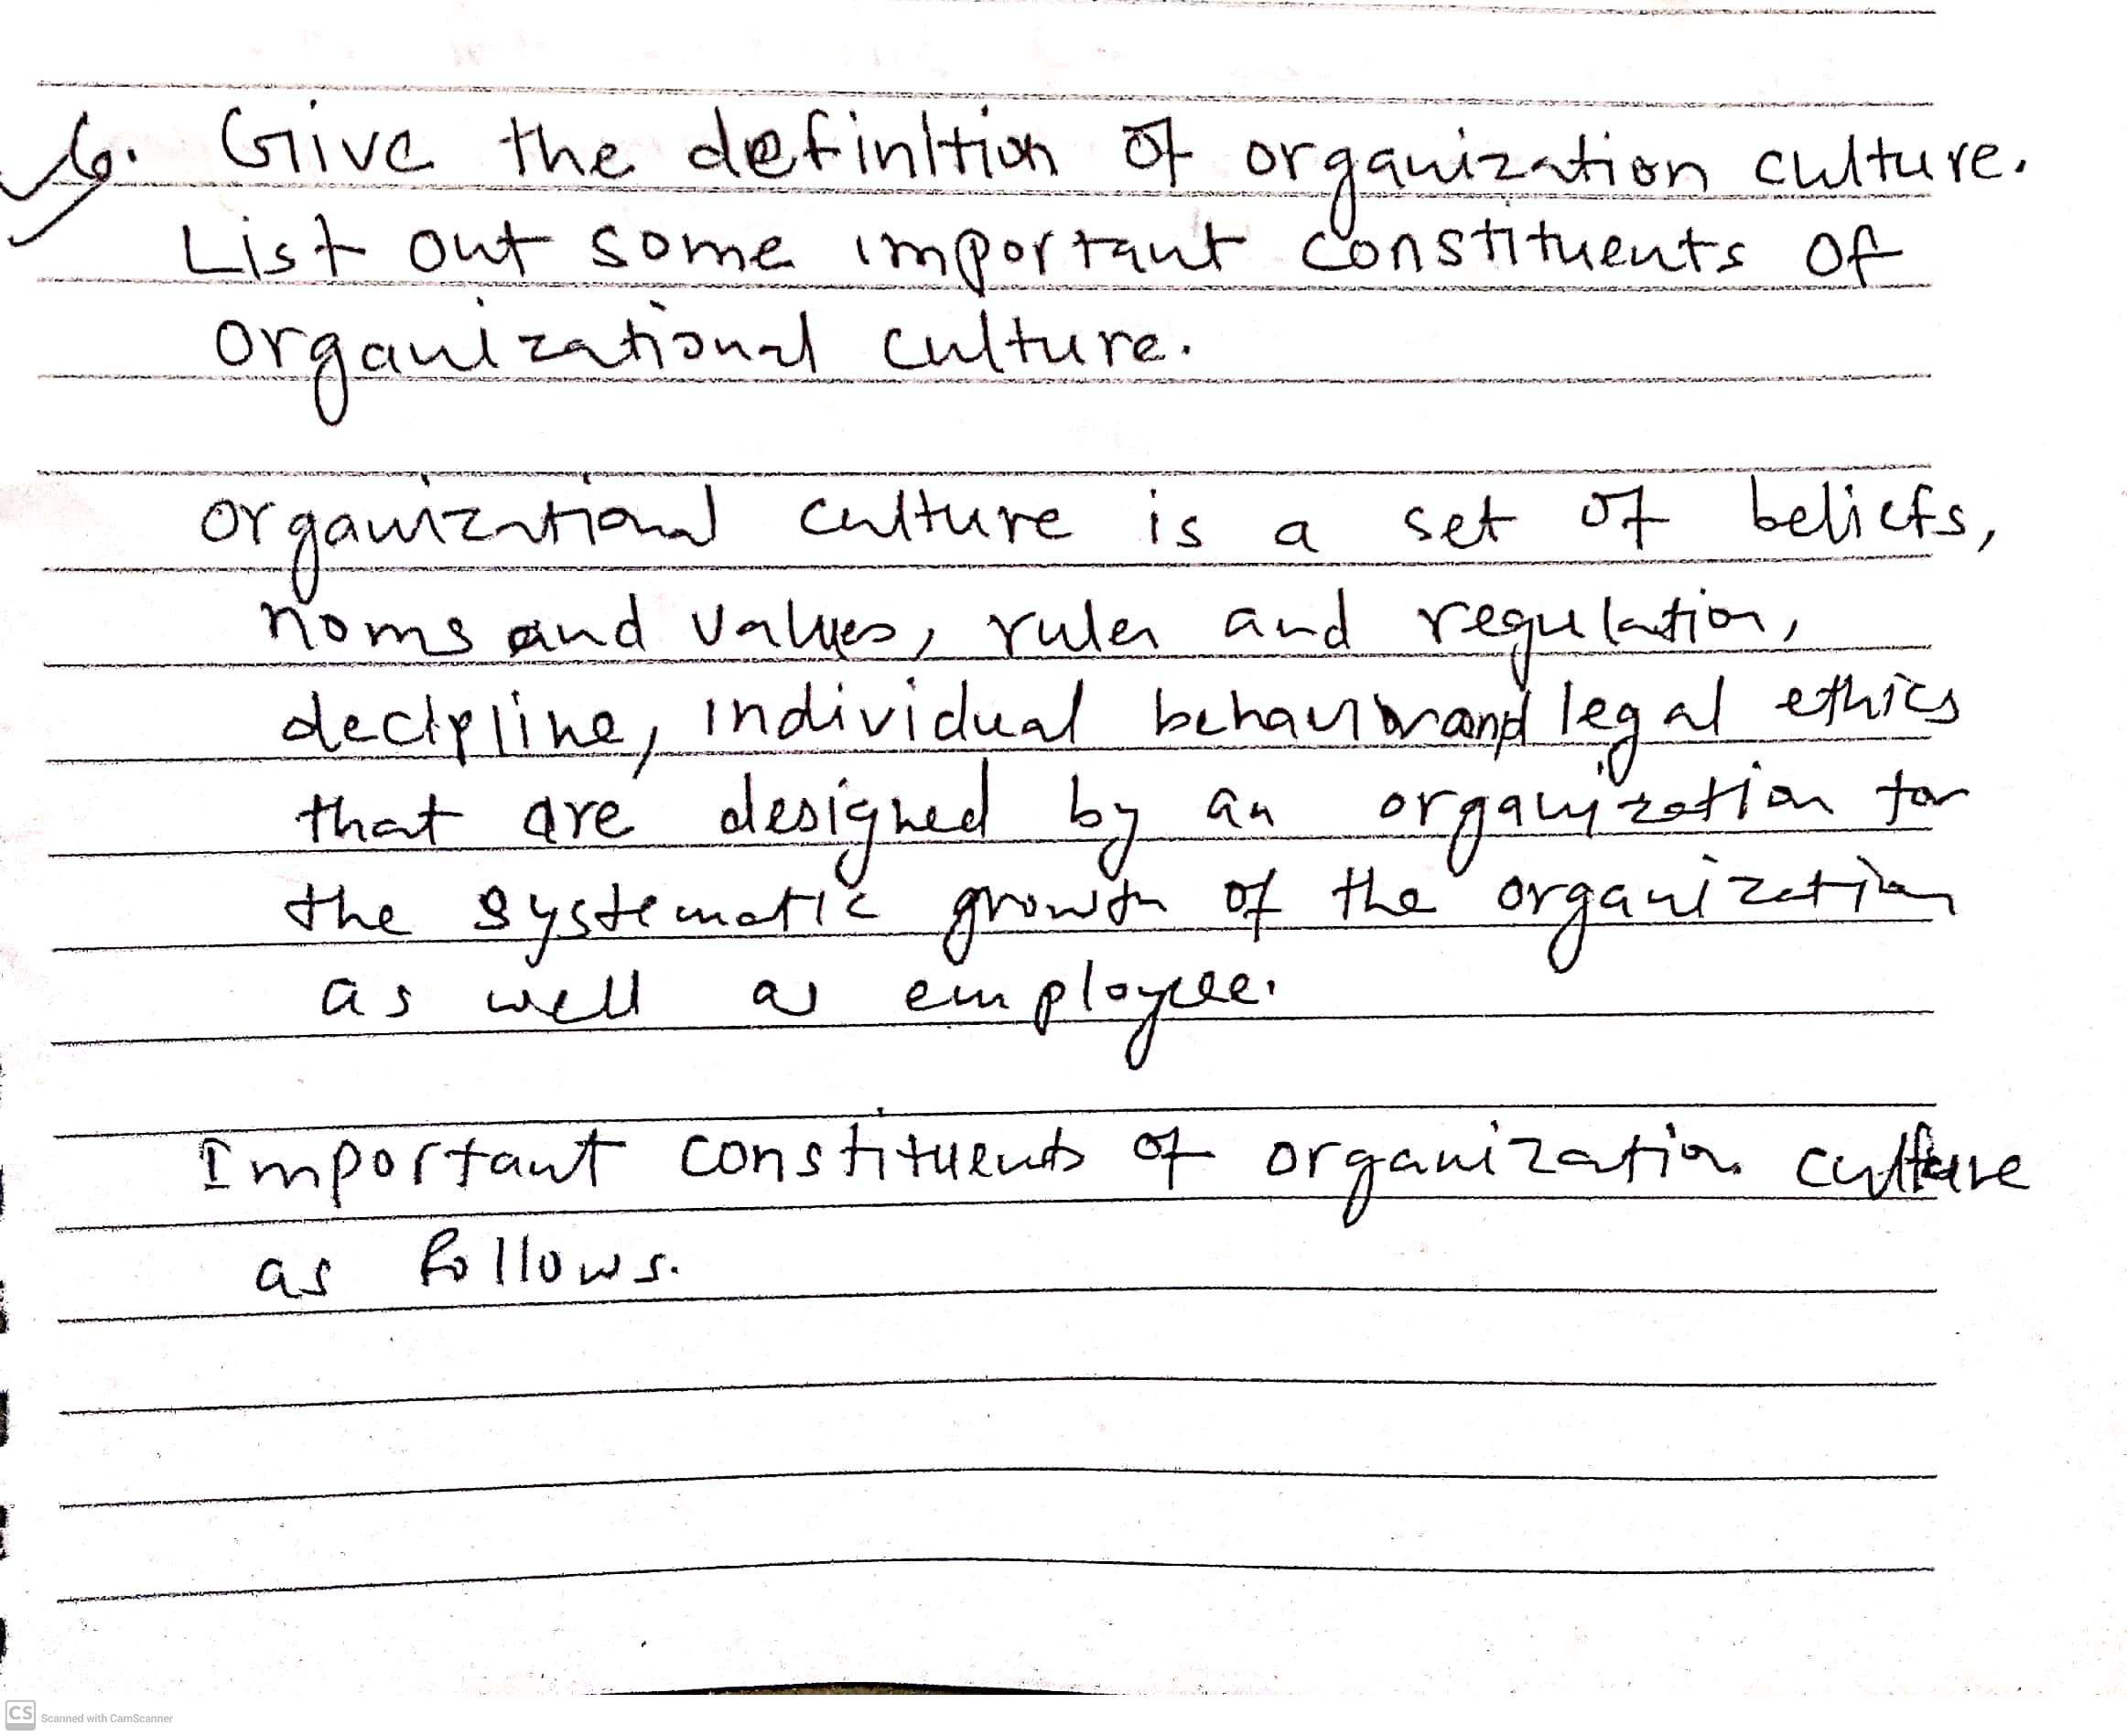 6. Give the definition of organization culture.
List out some important constituents of
organizational culture.
organizational culture is a set of beliefs,
noms and values, rules and regulation,
decipline, individual behaviour and legal ethics
that are designed by an organization for
the systematic growth of the organization
as well as employee.
Important constituents of organization culture
as follows.
CS Scanned with CamScanner